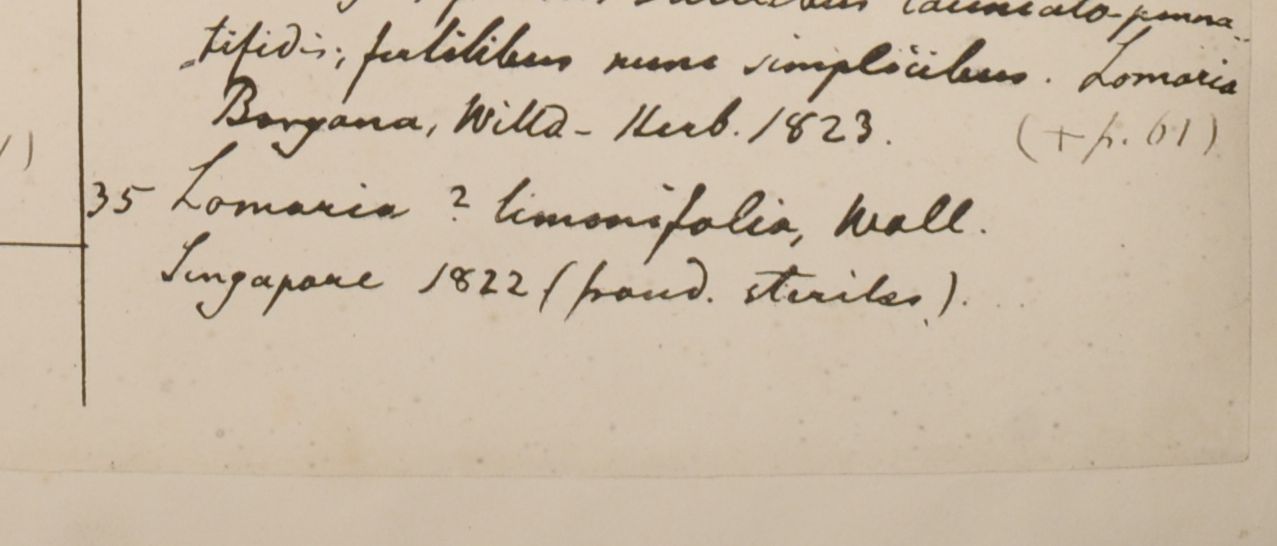 laciniato-pinna-
tifidis; fertilibus nunc simplicibus. Lomaria
Boryana, Willd - Herb. 1823. (+ p. 61)
35 Lomaria ? limonifolia, Wall.
Singapore 1822 (frond. steriles).